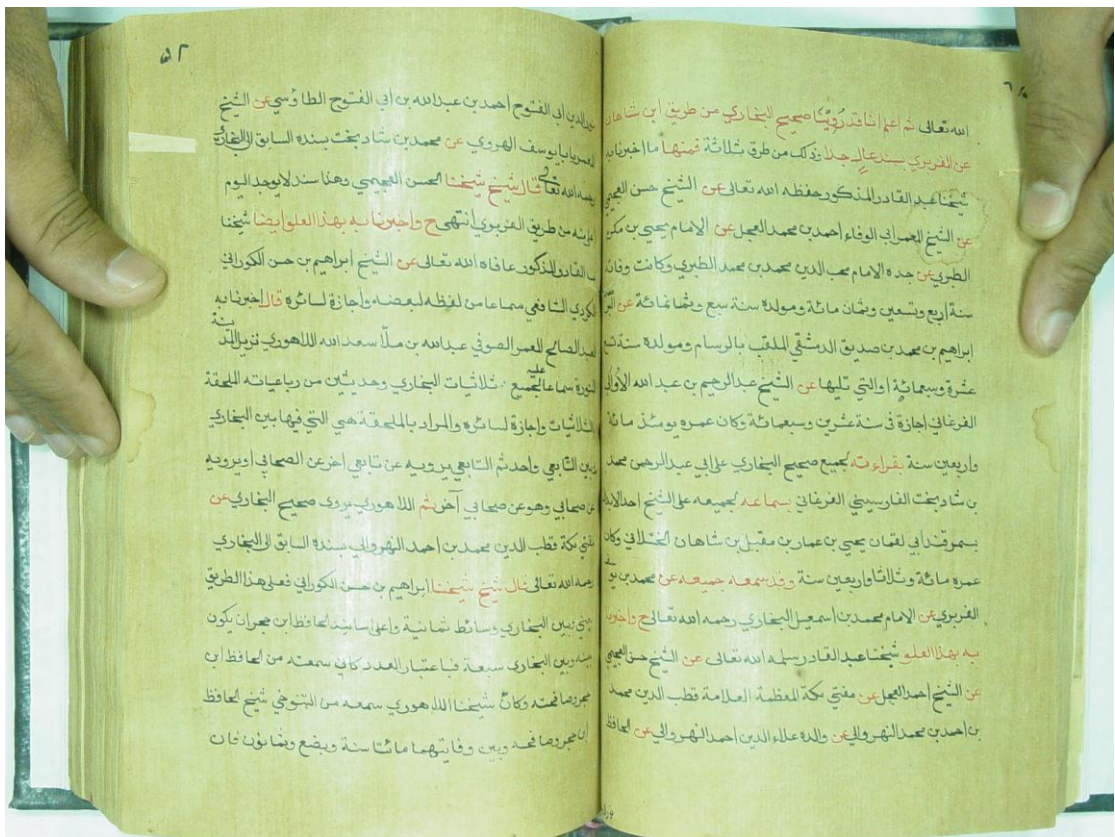 الله تعالى ثم اعلم انا قد روينا صحيح البخاري من طريق ابن شاهان
عن الفربري بسند عال جدا وذلك من طرق ثلاثة فمنها ما اخبرنا به
شيخنا عبد القادر المذكور حفظه الله تعالى عن الشيخ حسن العجيمي
عن الشيخ المعمر ابي الوفاء احمد بن محمد العجل عن الامام يحيى بن مكرم
الطبري عن جده الامام محب الدين محمد بن محمد الطبري وكانت وفاته
سنة اربع وتسعين وثمان مائة ومولده سنة سبع وثمانمائة عن
ابراهيم بن محمد بن صديق الدمشقي الملقب بالرسام ومولده سنة تسع
عشرة وسبعمائة او التي تليها عن الشيخ عبد الرحيم بن عبد الله الاوالي
الفرغاني اجازة في سنة عشرين وسبعمائة وكان عمره يومئذ مائة
واربعين سنة بقراءته لجميع صحيح البخاري على ابي عبد الرحمن محمد
بن شاد بخت الفارسيني الفرغاني بسماعه لجميعه على الشيخ احد الابدال
بسمرقند ابي لقمان يحيى بن عمار بن مقبل بن شاهان الختلاني وكان
عمره مائة وثلاثا واربعين سنة وقد سمعه جميعه عن محمد بن يو
الفربري عن الامام محمد بن اسمعيل البخاري رحمه الله تعالى ح واخبرنا
به بهذا العلو شيخنا عبد القادر سلمه الله تعالى عن الشيخ حسن العجيمي
عن الشيخ احمد العجل عن مفتي مكة المعظمة العلامة قطب الدين محمد
بن احمد بن محمد النهروالي عن والده علاء الدين احمد النهروالي عن الحافظ
٥٢
نور الدين ابي الفتوح احمد بن عبد الله بن ابي الفتوح الطاؤسي عن الشيخ
المعمر بابا يوسف الهروي عن محمد بن شاد بخت بسنده السابق الى البخاري
رحمه الله تعالى قال شيخ شيخنا الحسن العجيمي وهذا سند لا يوجد اليوم
اعلى منه من طريق الفربري انتهى ح واخبرنا به بهذا العلو ايضا شيخنا
عبد القادر المذكور عافاه الله تعالى عن الشيخ ابراهيم بن حسن الكوراني
الكردي الشافعي سماعا من لفظه لبعضه واجازة لسائره قال اخبرنا به
العبد الصالح المعمر الصوفي عبد الله بن ملا سعد الله اللاهوري نزيل المدينة
المنورة سماعا عليه لجميع ثلاثيات البخاري وحديثين من رباعياته الملحقة
بالثلاثيات واجازة لسائره والمراد بالملحقة هي التي فيها بين البخاري
وبين التابعي واحد ثم التابعي يرويه عن تابعي اخر عن الصحابي او يرويه
عن صحابي وهو عن صحابي آخر ثم اللاهوري يروى صحيح البخاري عن
مفتي مكة قطب الدين محمد بن احمد النهروالي بسنده السابق الى البخاري
رحمه الله تعالى قال شيخ شيخنا ابراهيم بن حسن الكوراني فعلى هذا الطريق
بيني وبين البخاري وسائط ثمانية واعلى اسانيد الحافظ ابن حجر ان يكون
بينه وبين البخاري سبعة فباعتبار العدد كاني سمعته من الحافظ ابن
حجر وصافحته وكان شيخنا اللاهوري سمعه من التنوخي شيخ الحافظ
ابن حجر وصافحه وبين وفاتيهما مائتا سنة وبضع وثمانون فان